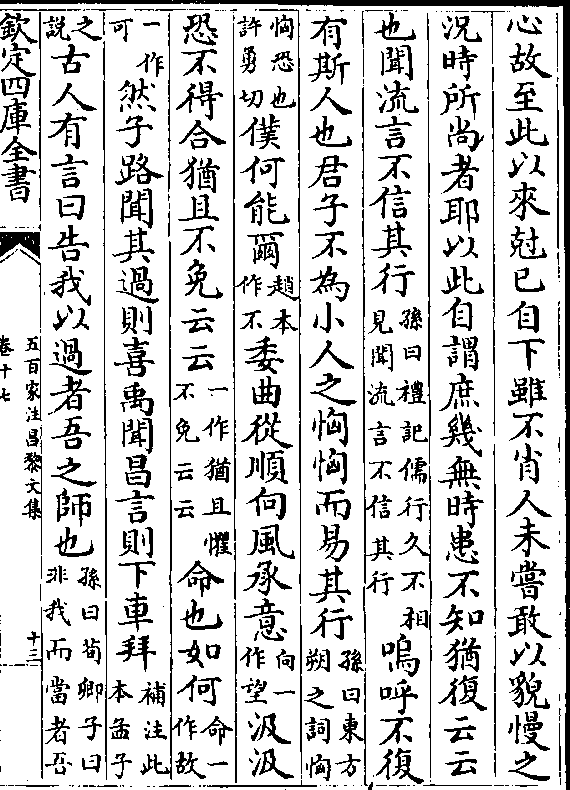 心故至此以來尅已自下雖不肖人未嘗敢以貌慢之
況時所尚者耶以此自謂庶幾無時患不知猶復云云
也聞流言不信其行孫曰禮記儒行久不相見聞流言不信其行嗚呼不復
有斯人也君子不為小人之恟恟而易其行孫曰東方朔之詞恟
恟恐也許勇切僕何能爾趙本作不委曲從順向風承意向一作望汲汲
恐不得合猶且不免云云一作猶且懼不免云云命也如何命一作故
一作可然子路聞其過則喜禹聞昌言則下車拜補注此本孟子
之說古人有言曰告我以過者吾之師也孫曰荀卿子曰非我而當者吾
欽定四庫全書
五百家注昌黎文集
卷十七
十三